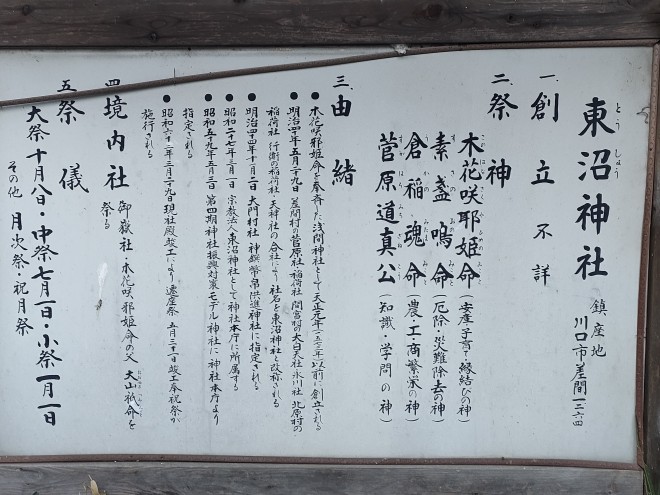 東沼神社
とうしょう
鎮座地
川口市差間一三六四
一、創立 不詳
二、祭神
木花咲耶姫命(安産子育て・縁結びの神)
素盞嗚命(厄除・災難除去の神)
倉稲魂命(農・工・商繁栄の神)
菅原道真公(知識・学問の神)
三、由緒
●木花咲耶姫命を奉斉した浅間神社として天正元年(一五七三)以前に創立される
●明治四年五月二十九日 差間村の菅原社 稲荷社 間宮村の太白天社 氷川社 北原村の
稲荷社 行衛の稲荷社 天神社の合社により社名を東沼神社と改称される
●明治四十四年十月二日 大門村社 神饌幣帛供進神社に指定される
●昭和二十七年三月一日 宗教法人東沼神社として神社本庁に所属する
●昭和五十九年五月三日 第四期神社振興対策モデル神社に神社本庁より
指定される
●昭和六十二年三月二十九日 現社殿竣工により遷座祭 五月三十一日竣工奉祝祭が
施行される
四、境内社 御嶽社・木花咲耶姫命の父 大山祇命を
祭る
五、祭儀
大祭十月八日・中祭七月一日・小祭一月一日
その他 月次祭・祝月祭